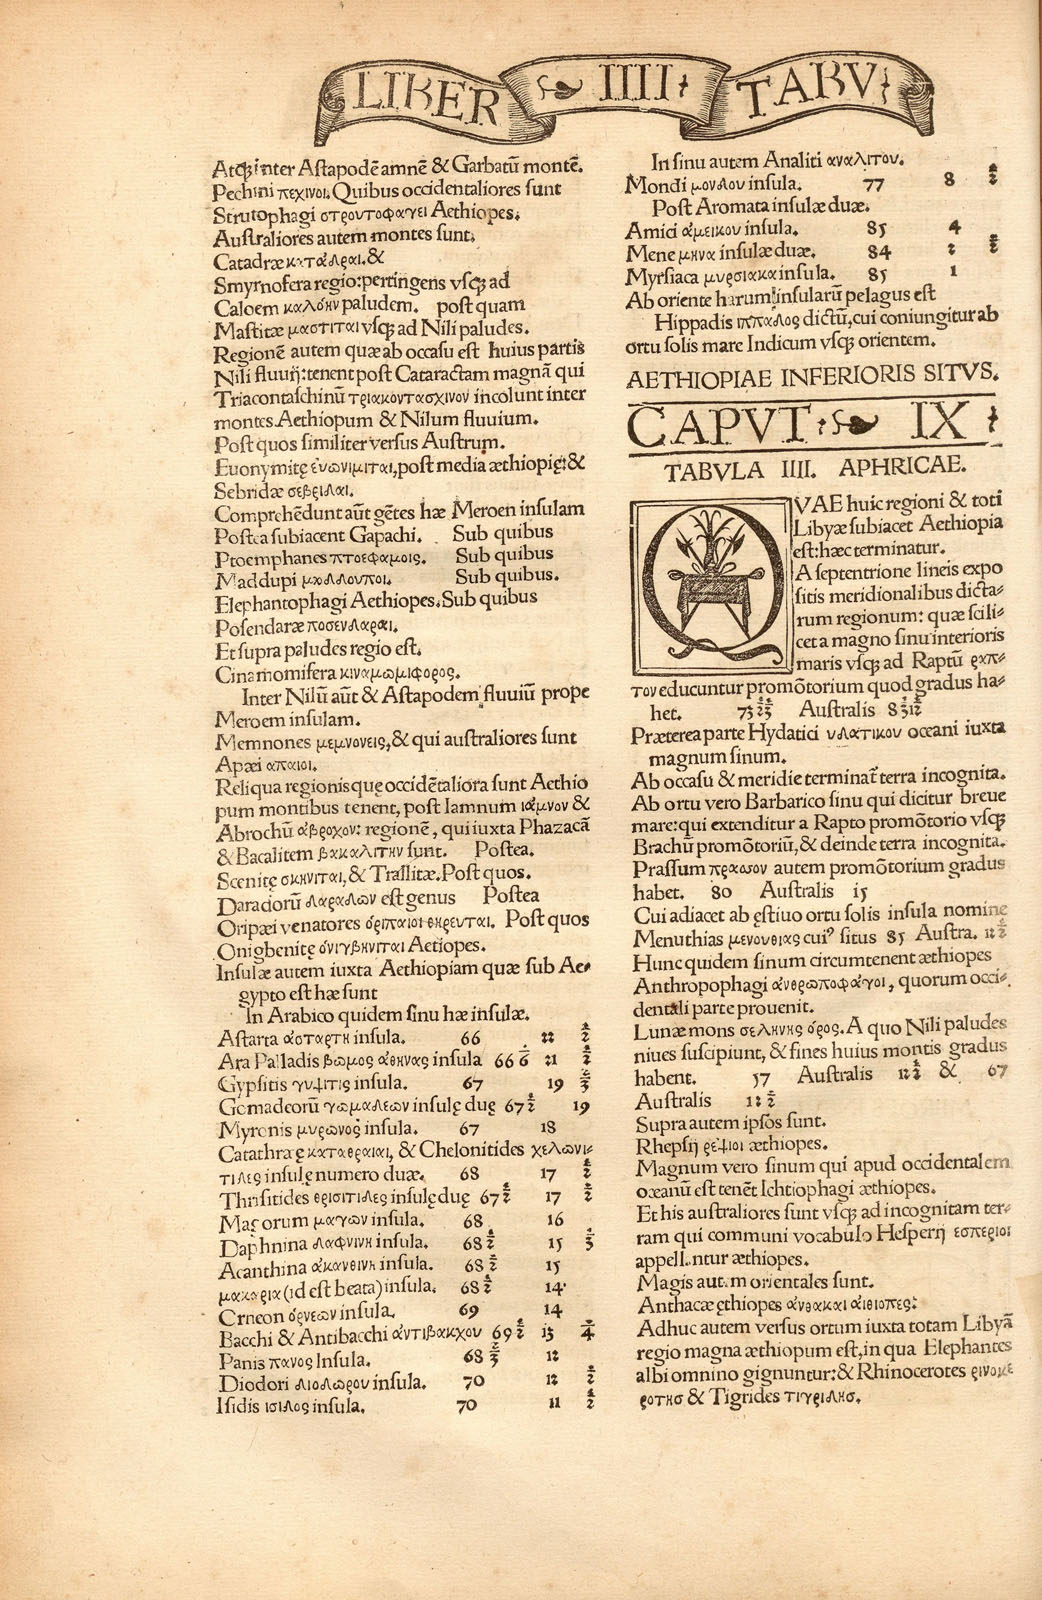 LIBER IIII TABV
Atq̃ inter Astapodẽ amnẽ & Garbatũ montẽ.
Pechini πεχινοι. Quibus occidentaliores sunt
Strutophagi στρουτοφαγει Aethiopes.
Australiores autem montes sunt.
Catadræ κατάδραι. &
Smyrnofera regio: pertingens vsq̃ ad
Caloem καλόην paludem. post quam
Mastitæ μαστιται vsq̃ ad Nili paludes.
Regionẽ autem quæ ab occasu est huius partis
Nili fluuij: tenent post Cataractam magnã qui
Triacontaschinũ τριακοντασχινον incolunt inter
montes Aethiopum & Nilum fluuium.
Post quos similiter versus Austrum.
Euonymitę ἐυωνιμιται, post media æthiopię: &
Sebridæ σεβριδαι.
Comprehẽdunt aũt gẽtes hæ Meroen insulam
Postea subiacent Gapachi. Sub quibus
Ptoemphanes πτοεφαμοις. Sub quibus
Maddupi μαδδουποι. Sub quibus.
Elephantophagi Aethiopes. Sub quibus
Posendaræ ποσενδαραι.
Et supra paludes regio est.
Cinamomifera κιναμωμιφορος.
Inter Nilũ aũt & Astapodem fluuiũ prope
Meroem insulam.
Memnones μεμνονεις, & qui australiores sunt
Apæi απαιοι.
Reliqua regionisque occidẽtaliora sunt Aethio
pum montibus tenent, post Iamnum ιαμνον &
Abrochũ ἀβροχον: regionẽ, qui iuxta Phazacã
& Bacalitem βακαλιτην sunt. Postea.
Scenitę σκηνιται, & Trallitæ. Post quos.
Daradorũ δαραδων est genus Postea
Oripæi venatores ὀριπαιοι θηρευται. Post quos
Onigbenitę ὀνιγβηνιται Aetiopes.
Insulæ autem iuxta Aethiopiam quæ sub Ae-
gypto est hæ sunt
In Arabico quidem sinu hæ insulæ.
Astarta ἀσταρτη insula. 66 22 ½
Ara Palladis βωμος ἀθηνας insula 66 1/6 21 ½
Gypsitis γυψιτις insula. 67 19 ⅔
Gomadeorũ γωμαδεων insulę duę 67 ½ 19
Myronis μυρωνος insula. 67 18
Catathrę καταθραιαι, & Chelonitides χελωνι-
τιδες insulę numero duæ. 68 17 ½
Thrisitides θρισιτιδες insulę duę 67 ½ 17 ½
Magorum μαγων insula. 68 16
Daphnina δαφνινη insula. 68 ½ 15 ⅓
Acanthina ἀκανθινη insula. 68 ½ 15
μακαρια (id est beata) insula. 68 ½ 14
Orneon ὀρνεων insula. 69 14
Bacchi & Antibacchi ἀντιβακχου 69 ½ 13 ¼
Panis πανος Insula. 68 ⅔ 12
Diodori διοδωρου insula. 70 12 ½
Isidis ισιδος insula. 70 11 ½
In sinu autem Analiti αναλιτου.
Mondi μονδου insula. 77 8 ½
Post Aromata insulæ duæ.
Amici ἀμεικου insula. 85 4
Mene μηνα insulæ duæ. 84 2 ½
Myrsiaca μυρσιακα insula. 85 1
Ab oriente harum insularũ pelagus est
Hippadis ιππαδος dictũ, cui coniungitur ab
ortu solis mare Indicum vsq̃ orientem.
AETHIOPIAE INFERIORIS SITVS.
CAPVT IX
TABVLA IIII. APHRICAE.
QVAE huic regioni & toti
Libyæ subiacet Aethiopia
est: hæc terminatur.
A septentrione lineis expo
sitis meridionalibus dicta-
rum regionum: quæ scili-
cet a magno sinu interioris
maris vsq̃ ad Raptũ ραπ-
τον educuntur promõtorium quod gradus ha-
bet. 73 ½ ⅓ Australis 8 ⅓ 1/12
Præterea parte Hydatici υδατικου oceani iuxta
magnum sinum.
Ab occasu & meridie terminat̃ terra incognita.
Ab ortu vero Barbarico sinu qui dicitur breue
mare: qui extenditur a Rapto promõtorio vsq̃
Brachũ promõtoriũ, & deinde terra incognita.
Prassum πρασσον autem promõtorium gradus
habet. 80 Australis 15
Cui adiacet ab ęstiuo ortu solis insula nomine
Menuthias μενουθιας cuiꝰ situs 85 Austra. 12 ½
Hunc quidem sinum circumtenent æthiopes
Anthropophagi ἀνθρωποφάγοι, quorum occi-
dentali parte prouenit.
Lunæ mons σεληνης ὀρος. A quo Nili paludes
niues suscipiunt, & fines huius montis gradus
habent. 57 Australis 12 ½ & 67
Australis 12 ½
Supra autem ipsos sunt.
Rhepsij ρεψιοι æthiopes.
Magnum vero sinum qui apud occidentalem
oceanũ est tenẽt Ichtiophagi æthiopes.
Et his australiores sunt vsq̃ ad incognitam ter-
ram qui communi vocabulo Hesperij εσπεριοι
appellantur æthiopes.
Magis autem orientales sunt.
Anthacæ ęthiopes ἀνθακαι αἰθιοπες:
Adhuc autem versus ortum iuxta totam Libyã
regio magna æthiopum est, in qua Elephantes
albi omnino gignuntur: & Rhinocerotes ρινοκε
ροτησ & Tigrides τιγριδησ.